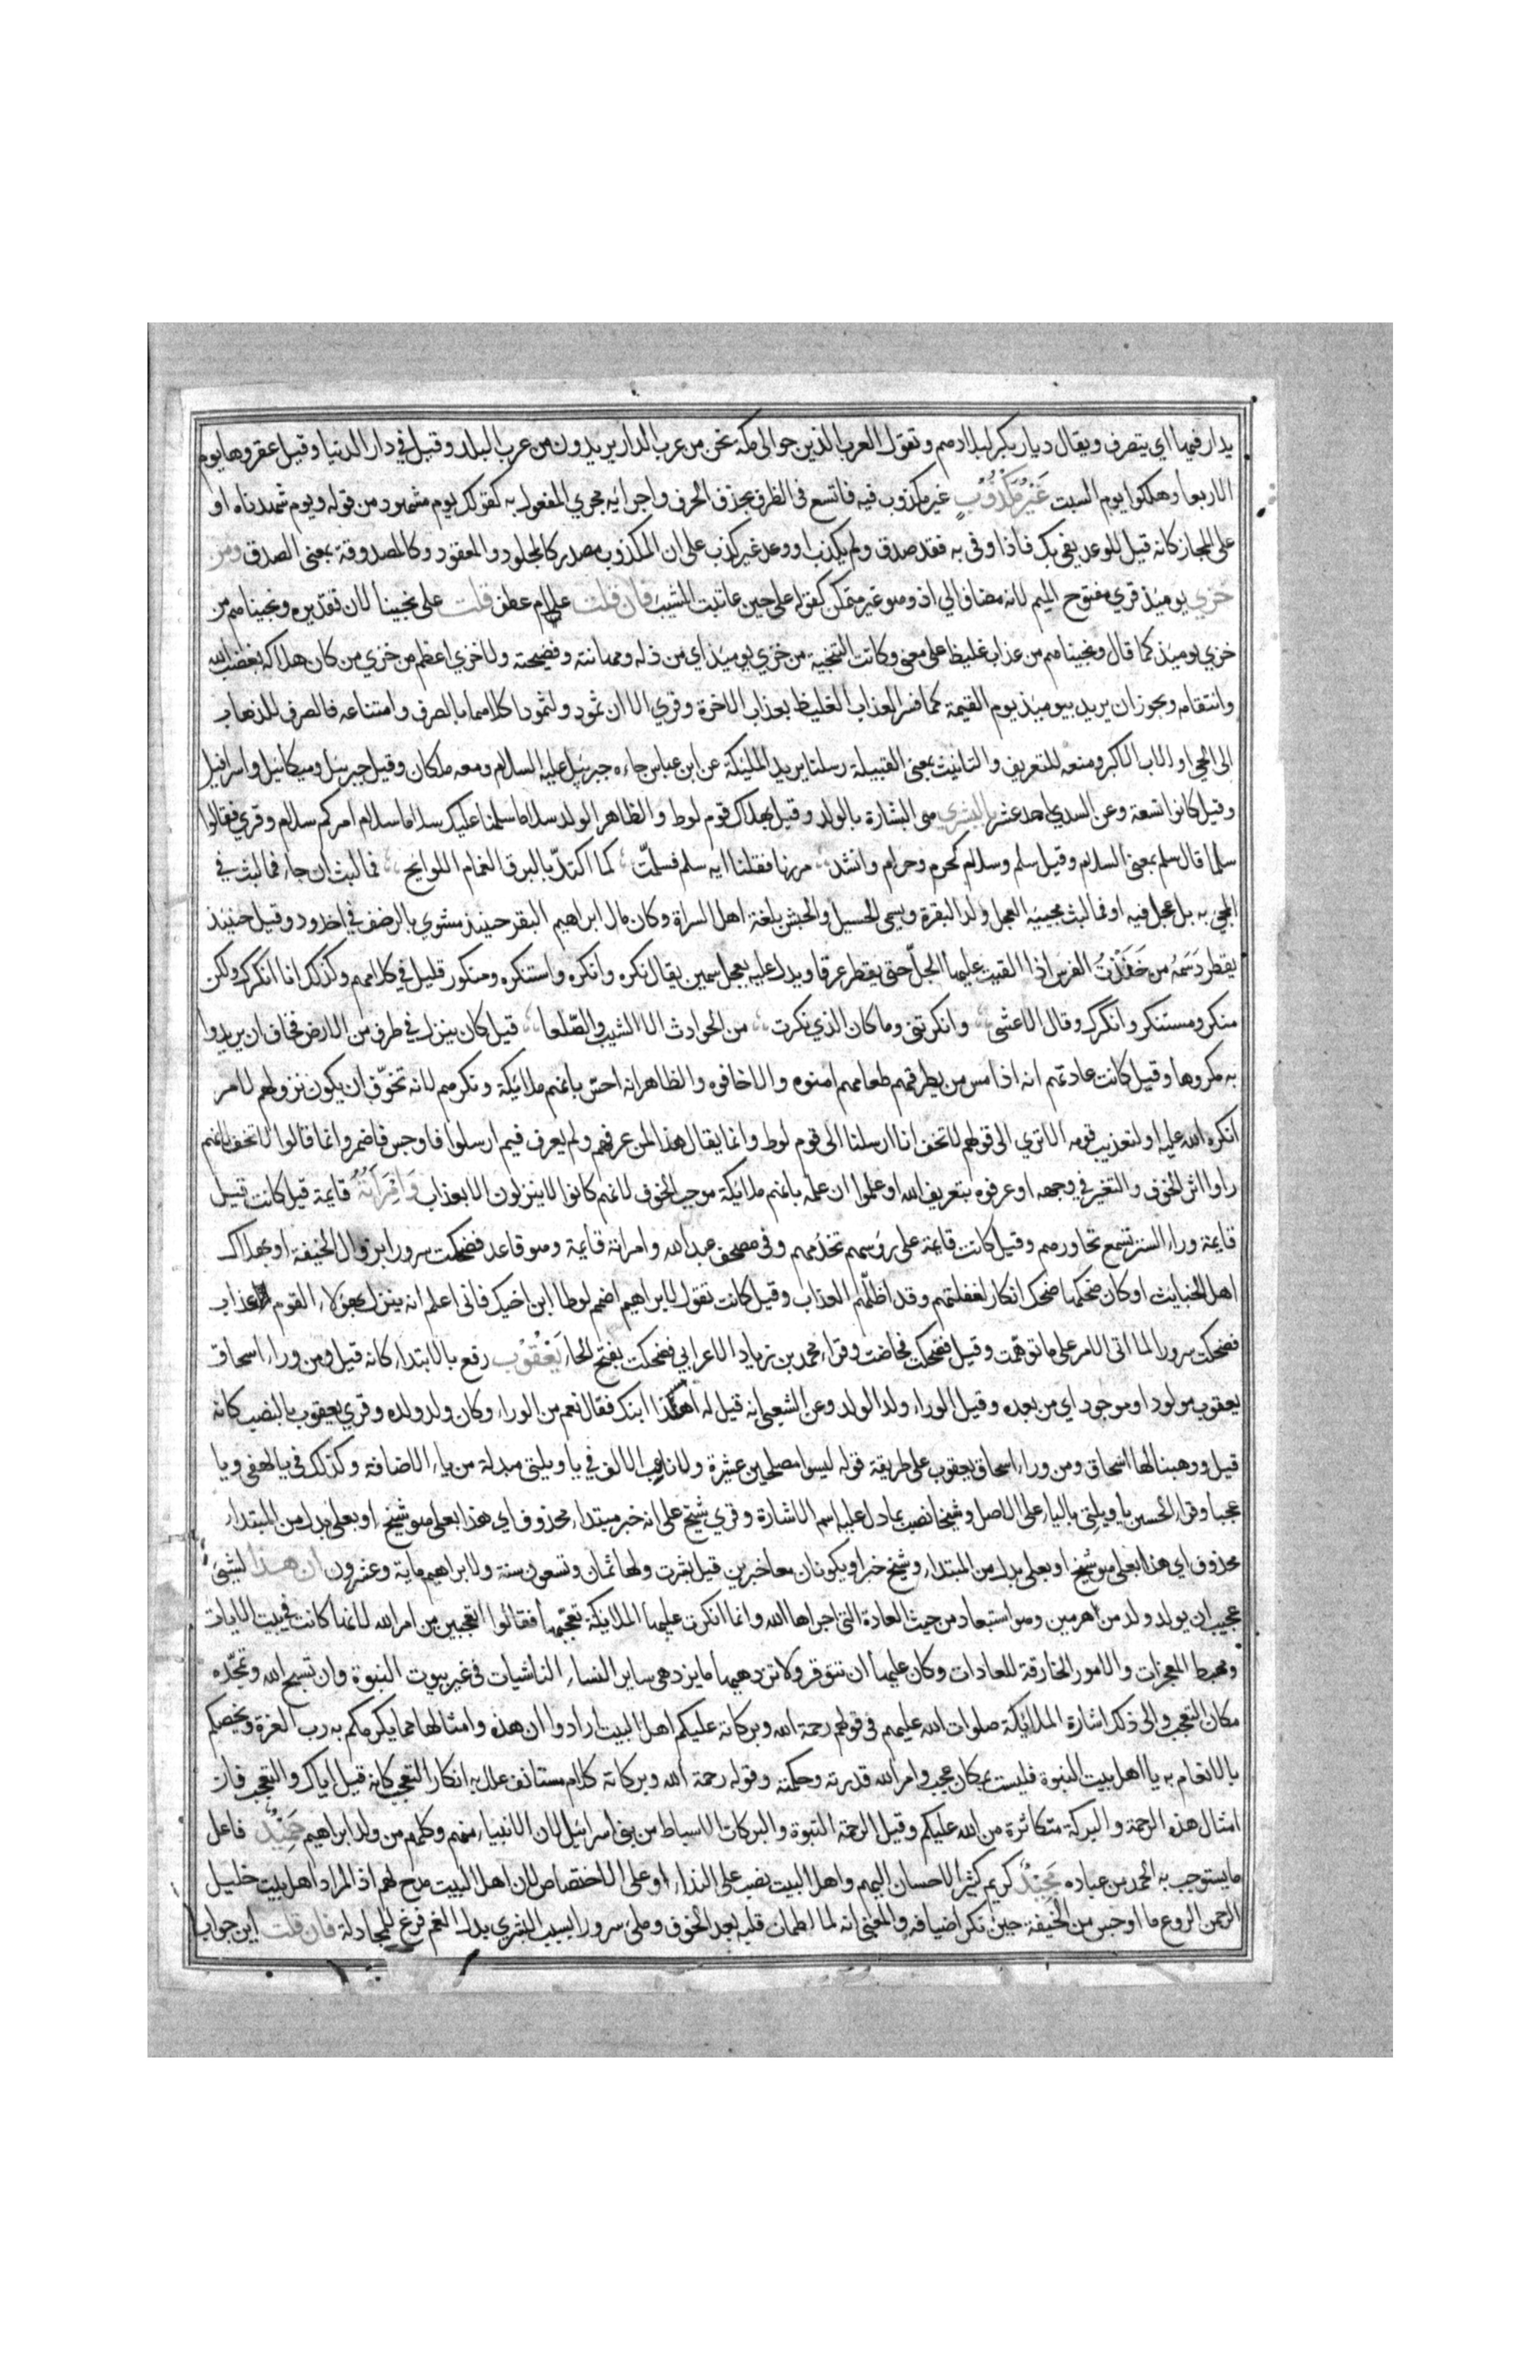 يدار فيها اي يتصرف ويقال ديار بكر لبلادهم وتقول العرب الذين حوالى مكة نحن من عرب الدار يريدون من عرب البلد وقيل في دار الدنيا وقيل عقروها يوم
الاربعا وهلكوا يوم السبت غَيْرُ مَكْذُوْبٍ غير مكذوب فيه فاتسع فى الظرف بحذف الحرف واجرائه مجري المفعول به كقولك يوم مشهود من قوله ويوم شهدناه او
على المجاز كانه قيل للوعد يفى بك فاذا وفى به فقد صدق ولم يكذب او وعد غير كذب على ان المكذوب مصدر كالمجلود والمعقود وكالمصدوقة بمعنى الصدق ومن
خزي يوميذ قري مفتوح الميم لانه مضاف الي اذ وهو غير متمكن كقوله على حين عاتبت المشيب فان قلت علام عطف قلت على نجينا لان تقديره ونجيناهم من
خزي يوميذ كما قال ونجيناهم من عذاب غليظ على معنى وكانت التنجية من خزي يوميذ اي من ذله ومهانته وفضيحته ولا خزي اعظم من خزي من كان هلاكه بغضب الله
وانتقامه ويجوز ان يريد بيوميذ يوم القيمة كما فسر العذاب الغليظ بعذاب الاخرة وقري الا ان ثمود ولثمود كلاهما بالصرف وامتناعه فالصرف للذهاب
الى الحي او الاب الاكبر ومنعه للتعريف والتانيث بمعنى القبيلة رسلنا يريد المليكة عن ابن عباس جاءه جبرئيل عليه السلام ومعه ملكان وقيل جبرئيل وميكائيل واسرافيل
وقيل كانوا تسعة وعن السدي احد عشر بالبشري هى البشارة بالولد وقيل بهلاك قوم لوط والظاهر الولد سلاما سلمنا عليك سلاما سلام امركم سلام وقري فقالوا
سلما قال سلم بمعنى السلام وقيل سلم وسلام كحرم وحرام وانشد مررنا فقلنا ايه سلم فسلمّت كما اكتلّ بالبرق الغمام اللوايح فما لبث ان جاء فما لبث في
المجي به بل عجل فيه او فما لبث مجييه العجل ولد البقرة ويسمى الحسيل والحبش بلغة اهل السراة وكان مال ابراهيم البقر حنيذ مشوي بالرضف في اخدود وقيل حنيذ
يقطر دَسَمُه من حَنَذْتُ الفرس اذا القيت عليها الجلّ حتى يقطر عرقا ويدل عليه بعجل سمين يقال نكره وانكره واستنكره ومنكور قليل في كلامهم وكذلك انا انكرك ولكن
منكر ومستنكر وانكرك وقال الاعشى وانكرتنى وما كان الذي نكرت من الحوادث الا الشيب والصّلعا قيل كان ينزل في طرف من الارض فخاف ان يريدوا
به مكروها وقيل كانت عادتهم انه اذا مس من يطرقهم طعامهم امنوه والا خافوه والظاهر انه احسّ بانهم ملائيكة ونكرهم لانه تخوّف ان يكون نزولهم لامر
انكره الله عليه او لتعذيب قومه الا تري الى قولهم لا تخف انا ارسلنا الى قوم لوط وانما يقال هذا لمن عرفهم ولم يعرف فيم ارسلوا فاوجس فاضمر وانما قالوا لا تخف لانهم
راوا اثر الخوف والتغير في وجهه او عرفوه بتعريف الله او علموا ان علمه بانهم ملائيكة موجب الخوف لانهم كانوا لا ينزلون الا بعذاب وَامْرَأَتُهُ قايمة قيل كانت قيل
قايمة وراء الستر تسمع تحاورهم وقيل كانت قايمة على رؤسهم تخدُمهم وفى مصحف عبد الله وامراته قايمة وهو قاعد فضحكت سرورا بزوال الخيفة او بهلاك
اهل الخبايث او كان ضحكها ضحك انكار لغفلتهم وقد اظلّهم العذاب وقيل كانت تقول لابراهيم اضمم لوطا ابن اخيك فانى اعلم انه ينزل بهؤلاء القوم عذاب
فضحكت سرورا لما اتى الامر على ما توهّمت وقيل فضحكت فحاضت وقراء محمد بن زياد الاعرابي فضحكت بفتح الحاء يَعْقُوْبَ رفع بالابتداء كانه قيل ومن وراء اسحاق
يعقوب مولود او موجود اي من بعده وقيل الوراء ولد الولد وعن الشعبى انه قيل له اهذا ابنك فقال نعم من الوراء وكان ولد ولده وقري يعقوب بالنصب كانه
قيل ووهبنا لها اسحاق ومن وراء اسحاق يعقوب على طريقة قوله ليسوا مصلحين عشيرة ولا ناعب الالف في يا ويلتى مبدلة من ياء الاضافة وكذلك فى يا لهفى ويا
عجبا وقراء الحسين يا ويلتى بالياء على الاصل وشيخا نصب بما دل عليه اسم الاشارة وقري شيخ على انه خبر مبتداء محذوف اي هذا بعلى هو شيخ او بعلى بدل من المبتداء
محذوف اي هذا بعلى هو شيخ او بعلى بدل من المبتداء وشيخ خبر او يكونان معا خبرين قيل بشرت ولها ثمان وتسعون سنة ولابراهيم ماية وعشرون ان هذا لشيئ
عجيب ان يولد ولد من هرمين وهو استبعاد من حيث العادة التى اجراها الله وانما انكرت عليها الملايكة تعجّبها فقالوا اتعجبين من امر الله لانها كانت في بيت الايات
ومهبط المعجزات والامور الخارقة للعادات وكان عليها ان تتوقر ولا تزدهيها ما يزدهى ساير النساء الناشيات فى غير بيوت النبوة وان تسبح الله وتمجّده
مكان التعجب والى ذلك اشارة الملائيكة صلوات الله عليهم فى قولهم رحمة الله وبركاته عليكم اهل البيت ارادوا ان هذه وامثالها مما يكرمكم به رب العزة ويخصكم
بالانعام به يا اهل بيت النبوة فليست بمكان عجب وامر الله قدرته وحكمته وقوله رحمة الله وبركاته كلام مستانف علل به انكار التعجب كانه قيل اياك والتعجب فان
امثال هذه الرحمة والبركة متكاثرة من الله عليكم وقيل الرحمة النبوة والبركات الاسباط من بنى اسرائيل لان الانبياء منهم وكلهم من ولد ابراهيم حَمِيْدٌ فاعل
ما يستوجب به الحمد من عباده مَجِيْدٌ كريم كثير الاحسان اليهم واهل البيت نصب على النداء او على الاختصاص لان اهل البيت مدح لهم اذ المراد اهل بيت خليل
الرحمن الروع ما اوجس من الخيفة حين نكر اضيافه والمعنى انه لما اطمان قلبه بعد الخوف وملئ سرورا بسبب البشري بدل الغم فرغ للمجادلة فان قلت اين جواب